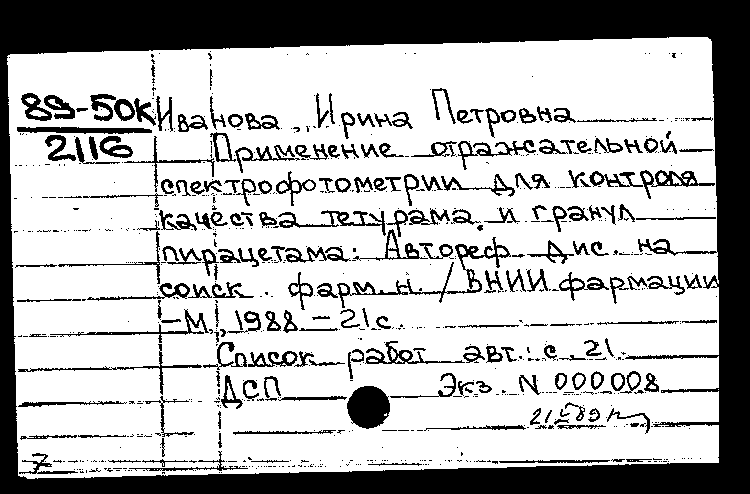 89-50К
2116
Иванова, Ирина Петровна
Применение отражательной
спектрофотометрии для контроля
качества тетурама и гранул
пирацетама: Автореф. дис. на
соиск. фарм. н. / ВНИИ фармации
-М., 1988. - 21с.
Список работ авт.: с. 21.
ДСП Экз. N 000008
7